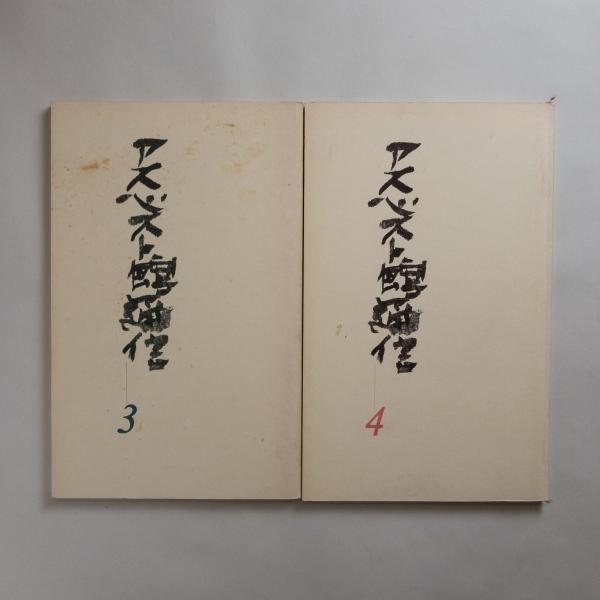 アスベスト館通信
3
アスベスト館通信
4